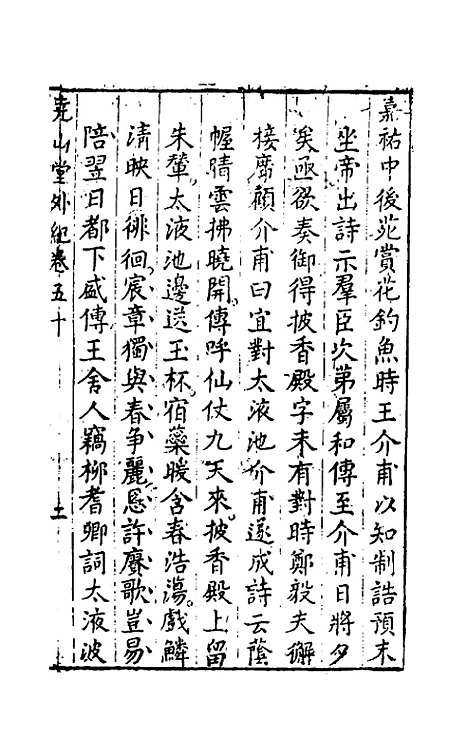 嘉祐中後苑賞花釣魚時王介甫以知制誥預末
坐帝出詩示羣臣次第屬和傳至介甫日將夕
矣亟欲奏御得披香殿字未有對時鄭毅夫獬
接席顧介甫曰宜對太液池介甫遂成詩云蔭
幄晴雲拂曉開傳呼仙仗九天來披香殿上留
朱輦太液池邊送玉杯宿蘂暖含春浩蕩戲鱗
清映日徘徊宸章獨與春爭麗恩許賡歌豈易
陪翌日都下盛傳王舍人竊柳耆卿詞太液波
堯山堂外紀卷五十